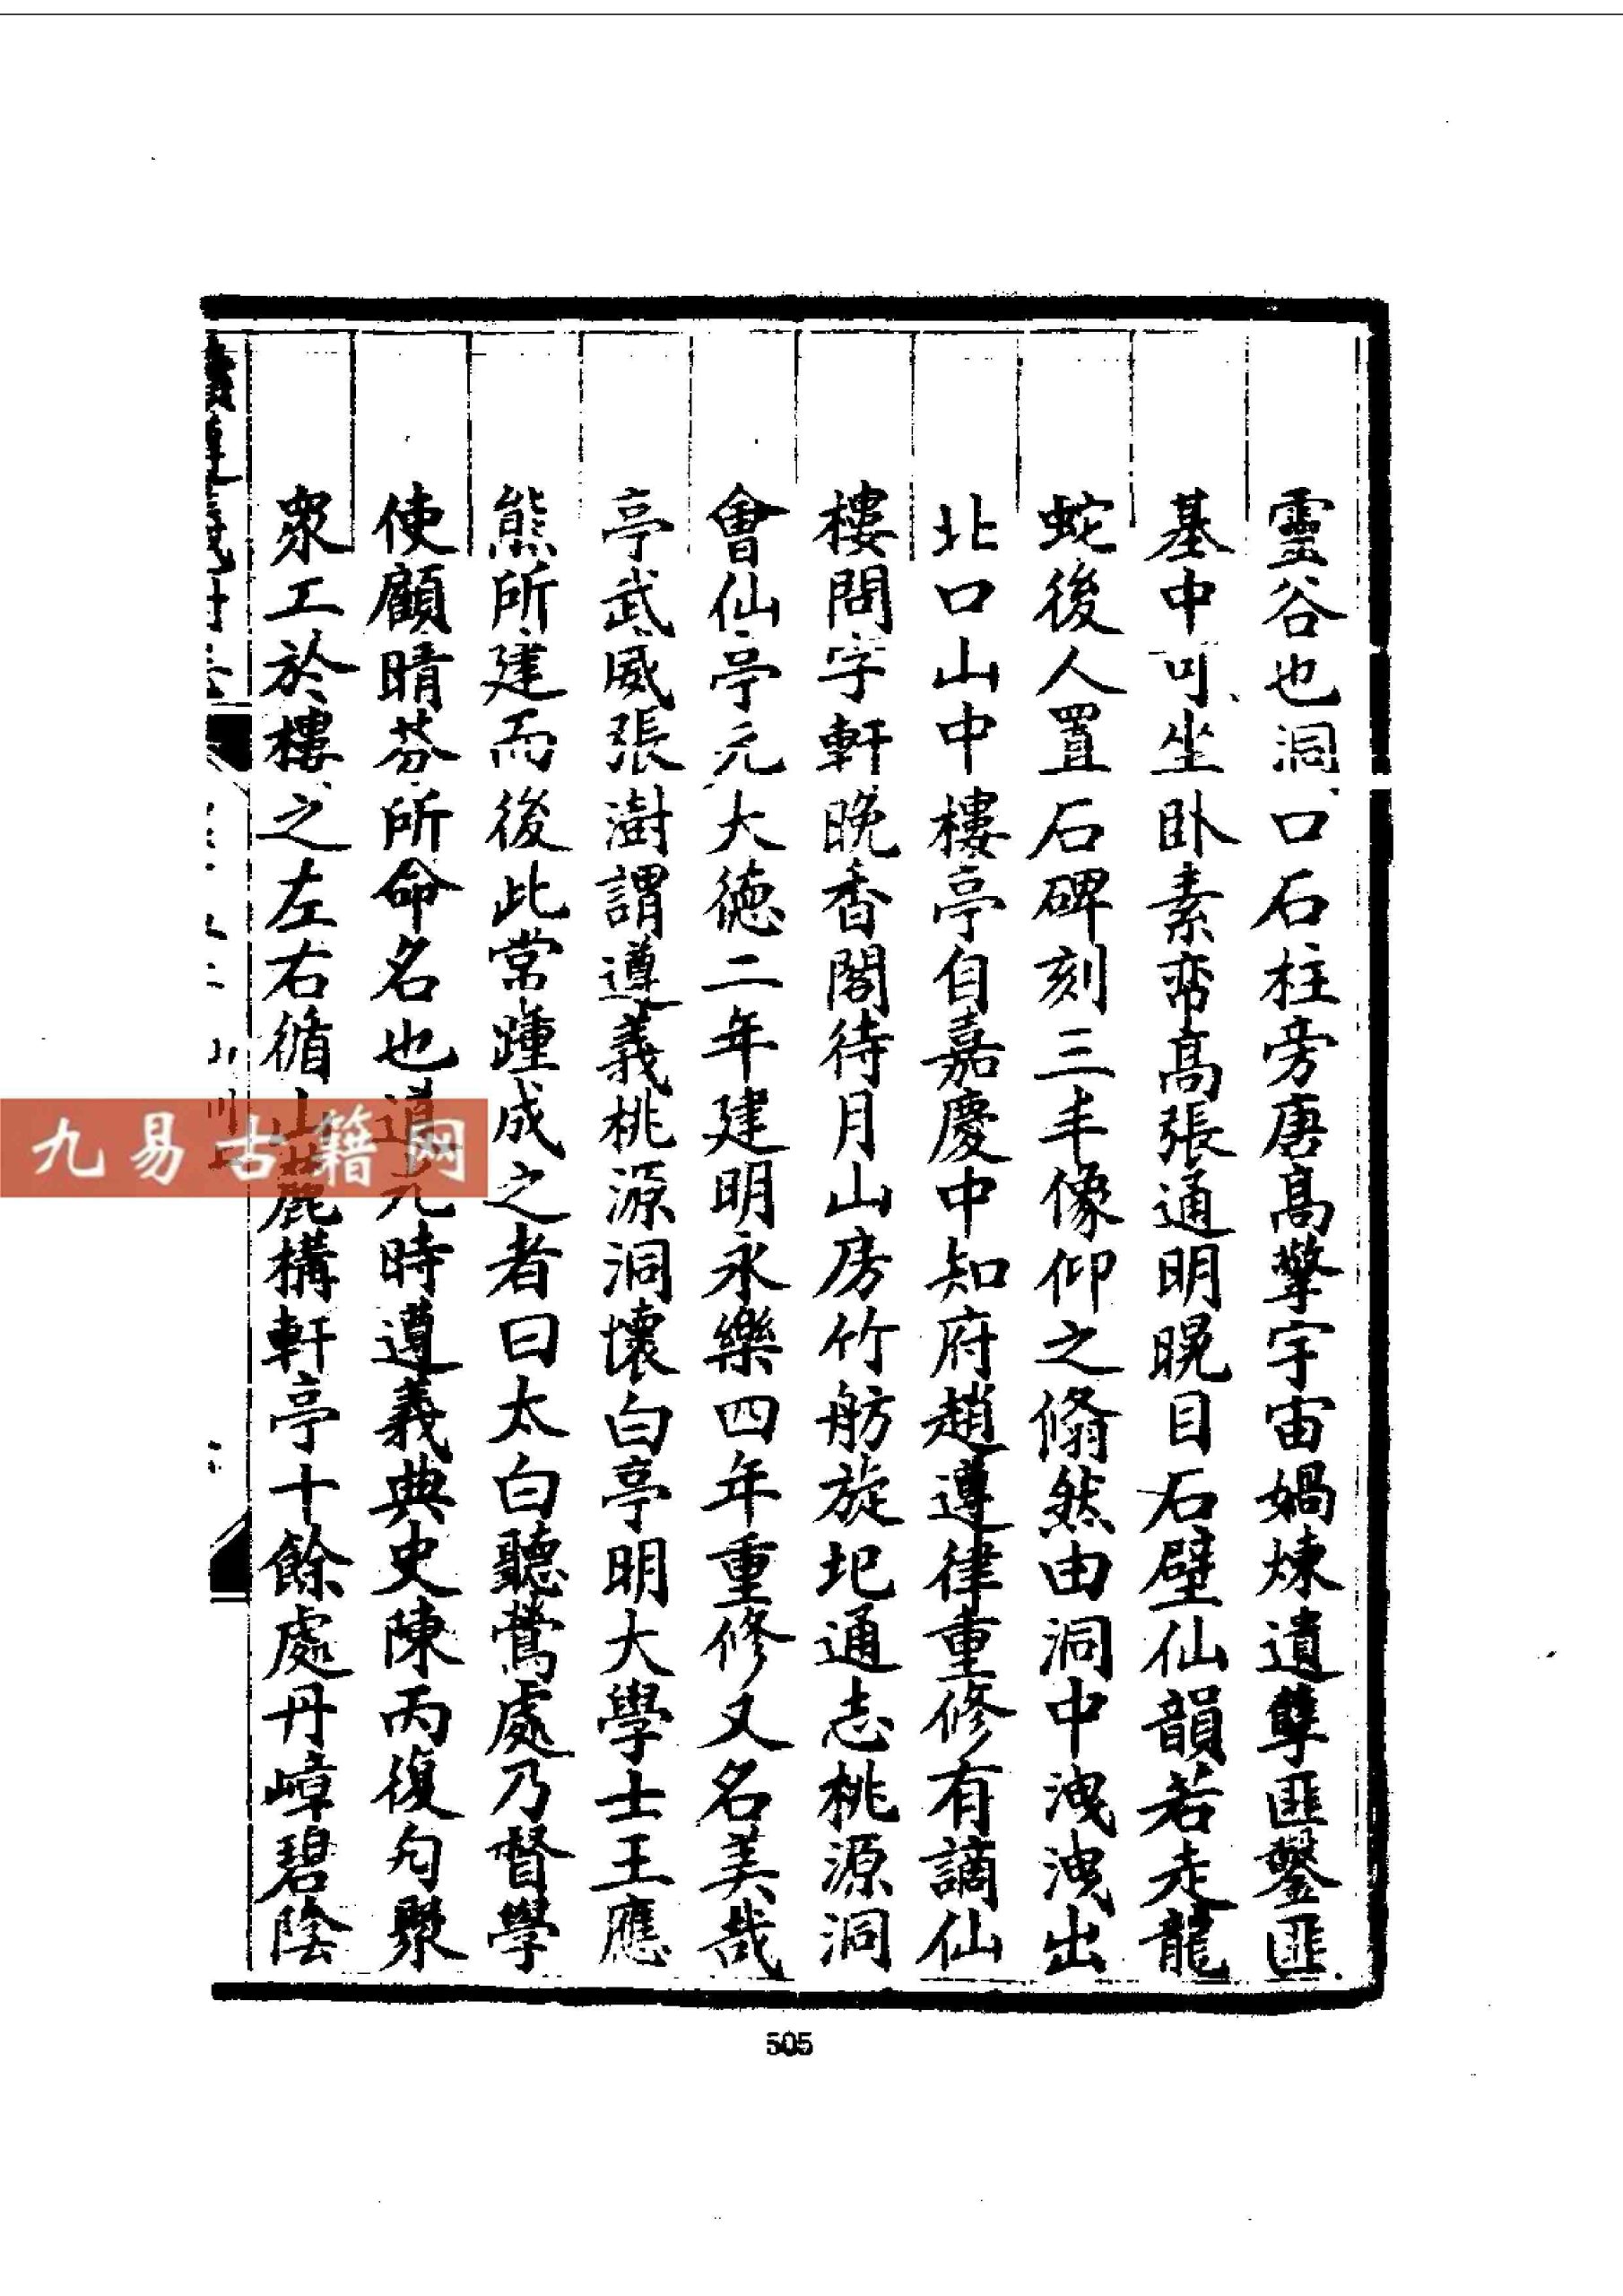 靈谷也洞口石柱旁唐髙擎宇宙媧煉遺隼匪鑿匪
基中可坐卧素帟髙張通明晃目石壁仙韻若走龍
蛇後人置石碑刻三丰像仰之翛然由洞中洩洩出
北口山中樓亭自嘉慶中知府趙遵律重修有謫仙
樓問字軒晚香閣待月山房竹舫旋圮通志桃源洞
會仙亭元大德二年建明永樂四年重修又名美哉
亭武威張澍謂遵義桃源洞懷白亭明大學士王應
熊所建而後此常踵成之者曰太白聽鶯處乃督學
使顧晴芬所命名也道光時遵義典史陳丙復勾聚
衆工於樓之左右循山麓構軒亭十餘處丹嶂碧陰
九易古籍网
505